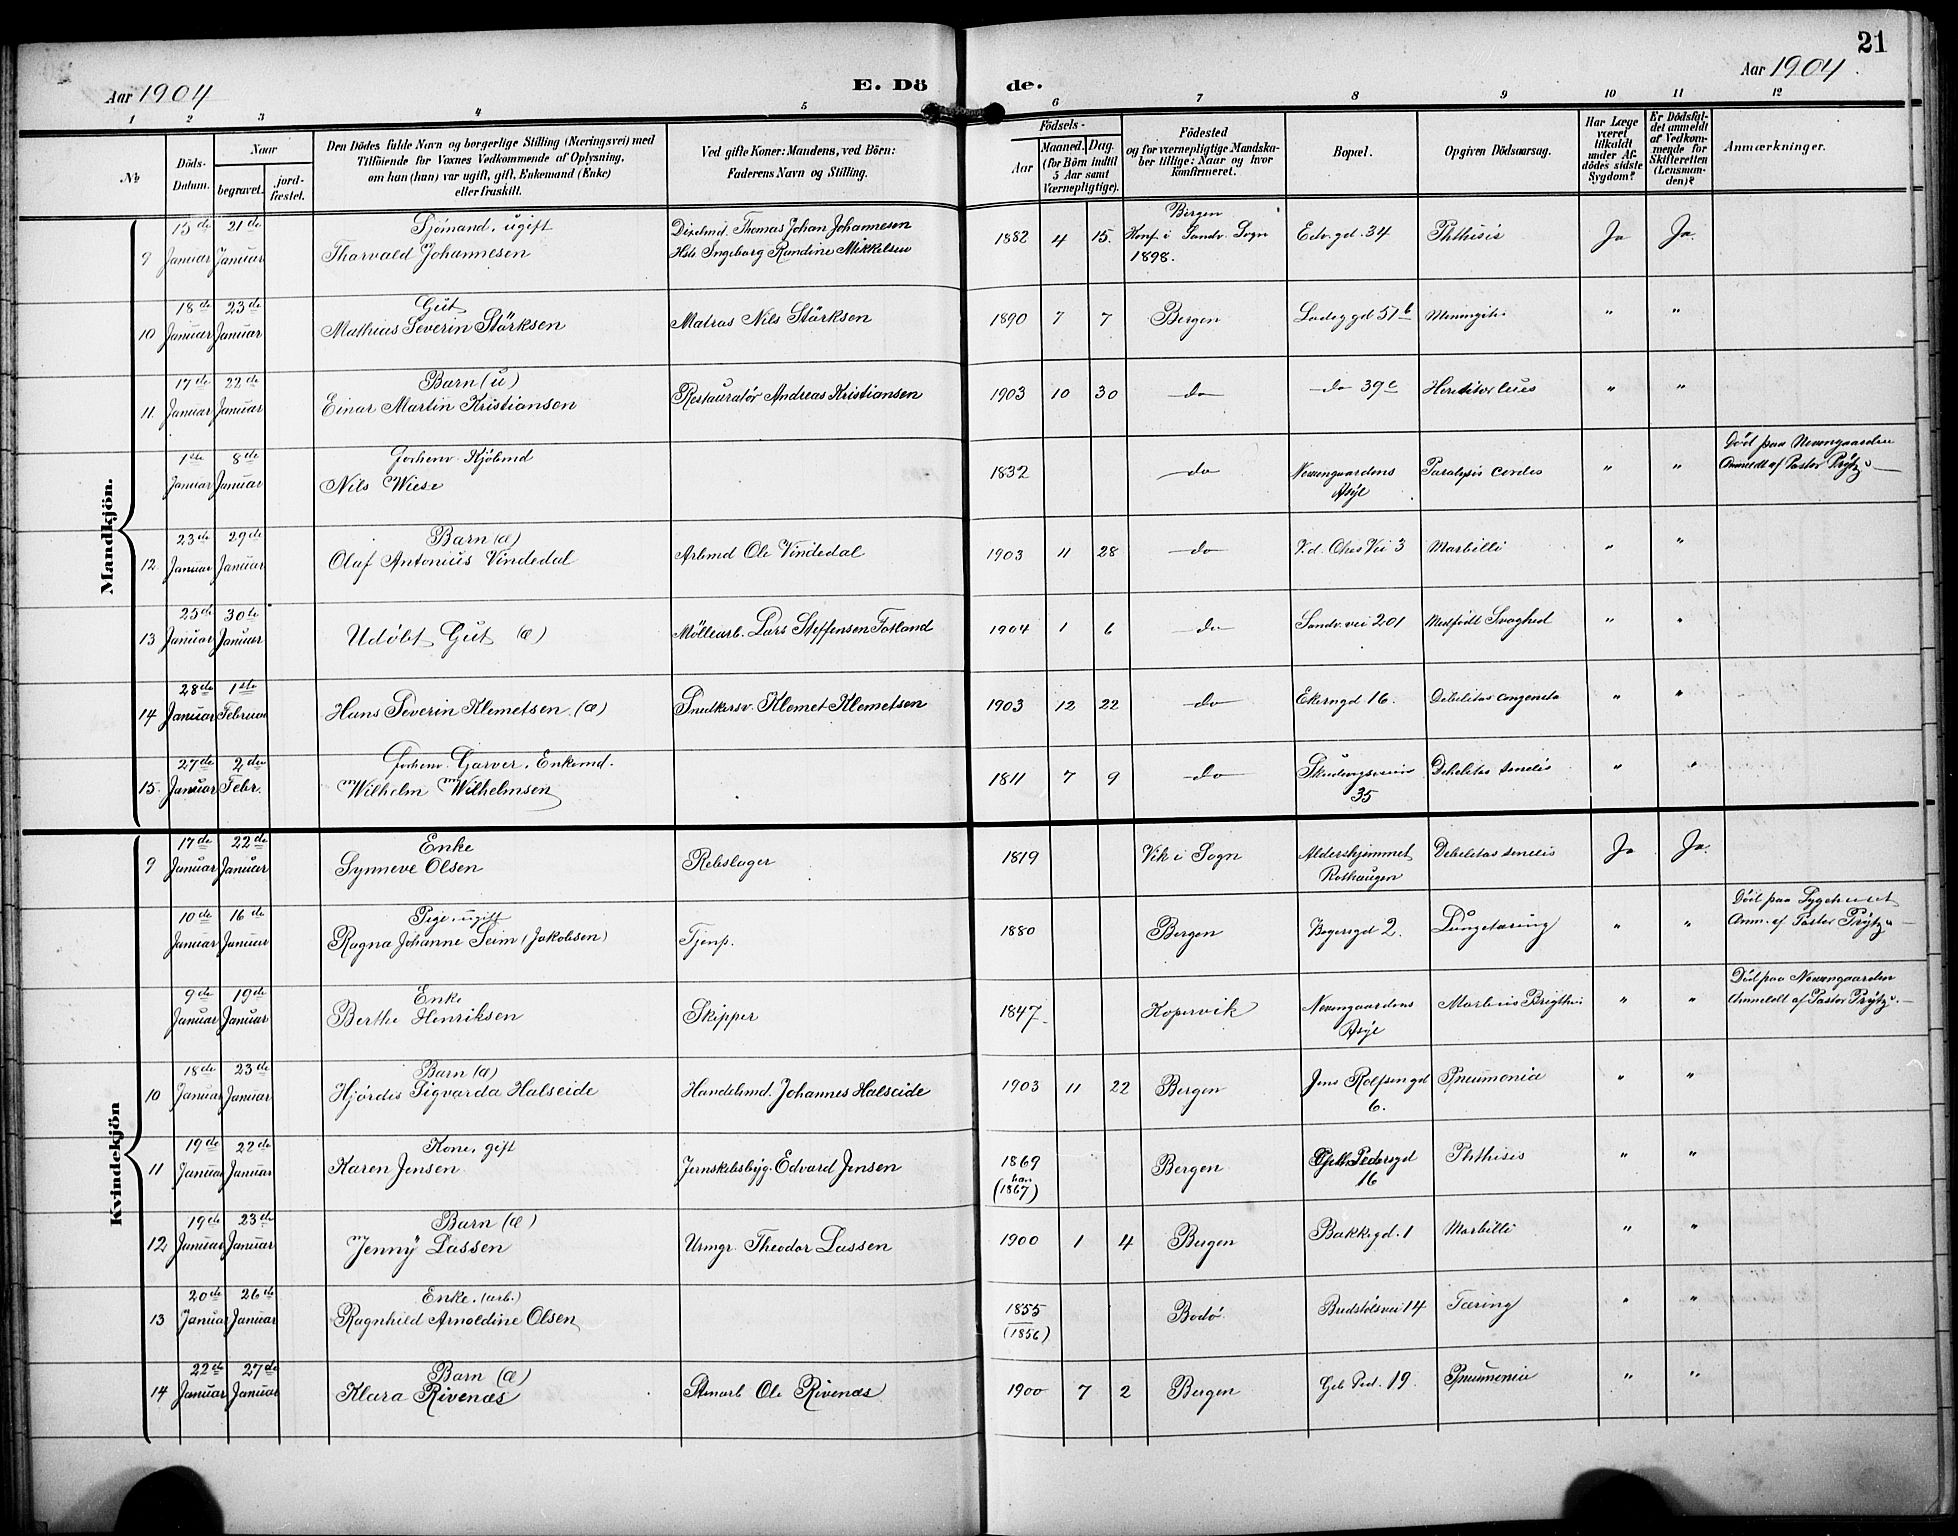 21
Aar 1904
E. Dö
de.
Aar 1904.
1 2 3 4 5 6 7 8 9 10 11 12
No
Döds-Datum.
Naar
begravet.
jord-fæstet.
Den Dödes fulde Navn og borgerlige Stilling (Næringsvei) med
Tilföiende for Voxnes Vedkommende af Oplysning,
om han (hun) var ugift, gift, Enkemand (Enke)
eller fraskilt.
Ved gifte Koner: Mandens, ved Börn:
Faderens Navn og Stilling.
Födsels-
Aar
Maaned. Dag.
(for Börn indtil
5 Aar samt
Værnepligtige).
Födested
og for værnepligtige Mandska-
ber tillige: Naar og hvor
konfirmeret.
Bopæl.
Opgiven Dödsaarsag.
Har Læge
været
tilkaldt
under Af-
dödes sidste
Sygdom?
Er Dödsfal-
det anmeldt
af Vedkom-
mende for
Skifteretten
(Lensman-
den)?
Anmærkninger.
Mandkjön.
15de 21de Sjömand, ugift Dixelmd. Thomas Johan Johannesen Bergen
9 Januar Januar Tharvald Johannesen Hstr Ingeborg Randine Mikkelsen 1882 4 15. Konf. i Sandv. Sogn 1898. Edv. gd. 34 Phthisis Ja Ja.
18de 23de Gut
10 Januar Januar Mathias Severin Störksen Matros Nils Störksen 1890 7 7 Bergen Ladeg gd 51b Meningitis " "
17de 22de Barn (u)
11 Januar Januar Einar Martin Kristiansen Restauratör Andreas Kristiansen 1903 10 30 do do 39c Hereditær lues " "
1ste 8de Forhenv. Kjöbmd
Januar Januar Nils Wiese 1832 do Nevengaardens Asyl Paralysis cordis " " Död paa Nevengaarden
Anmeldt af Pastor Prÿtz.
23de 29de Barn (æ)
12 Januar Januar Olaf Antonius Vindedal Arbmd Ole Vindedal 1903 11 28 do V. d. Ohrs Vei 3 Morbilli " "
25de 30te
13 Januar Januar Udöbt Gut (æ) Möllearb. Lars Steffensen Totland 1904 1 6 do Sandv. vei 201 Medfödt Svaghed " "
28de 1ste
14 Januar Februar Hans Severin Klemetsen (æ) Snedkersv. Klemet Klemetsen 1903 12 22 do Ekerngd 16. Debelitas congenita " "
27de 2den Forhenv. Garver, Enkemd.
15. Januar Febr. Wilhelm Wilhelmsen 1811 7 9 do 35 Debelitas senilis " "
Kvindekjön
17de 22de Enke
9 Januar Januar Synneve Olsen Rebslager 1819 Vik i Sogn Aldershjemmet Rothaugen Debelitas senilis Ja Ja.
10de 16de Pige, ugift
Januar Januar Ragna Johanne Seim (Jakobsen) Tjenp. 1880 Bergen 2. Lungetæring " " Död paa Sygehuset
Anm. af Pastor Prÿtz.
9de 19de Enke
Januar Januar Berthe Henriksen Skipper 1847 Kopervik Nevengaardens Asyl Morbus Brigthii " " Död paa Nevengaarden
Anmeldt af Pastor Prÿtz.
18de 23de Barn (æ)
10 Januar Januar Hjördis Sigvarda Halseide Handelsmd. Johannes Halseide 1903 11 22 Bergen Jens Rolfsen gd 6. Pneumonia " "
19de 22de Kone, gift
11 Januar Januar Karen Jensen Jernskibsbyg. Edvard Jensen 1869 (1867) Bergen 16 Phthisis " "
19de 23de Barn (æ)
12 Januar Januar Jenny Lassen Urmgr. Theodor Lassen 1900 1 4 Bergen Bakkegd. 1 Morbilli " "
20de 26de Enke. (arb.)
13 Januar Januar Ragnhild Arnoldine Olsen 1855 (1856) Bodö. Bredstölsvei 14 Tæring " "
22de 27de Barn (æ)
14 Januar Januar Klara Rivenæs Stenarb Ole Rivenæs 1900 7 2 Bergen Geb Ped. 19. Pneumonia " "